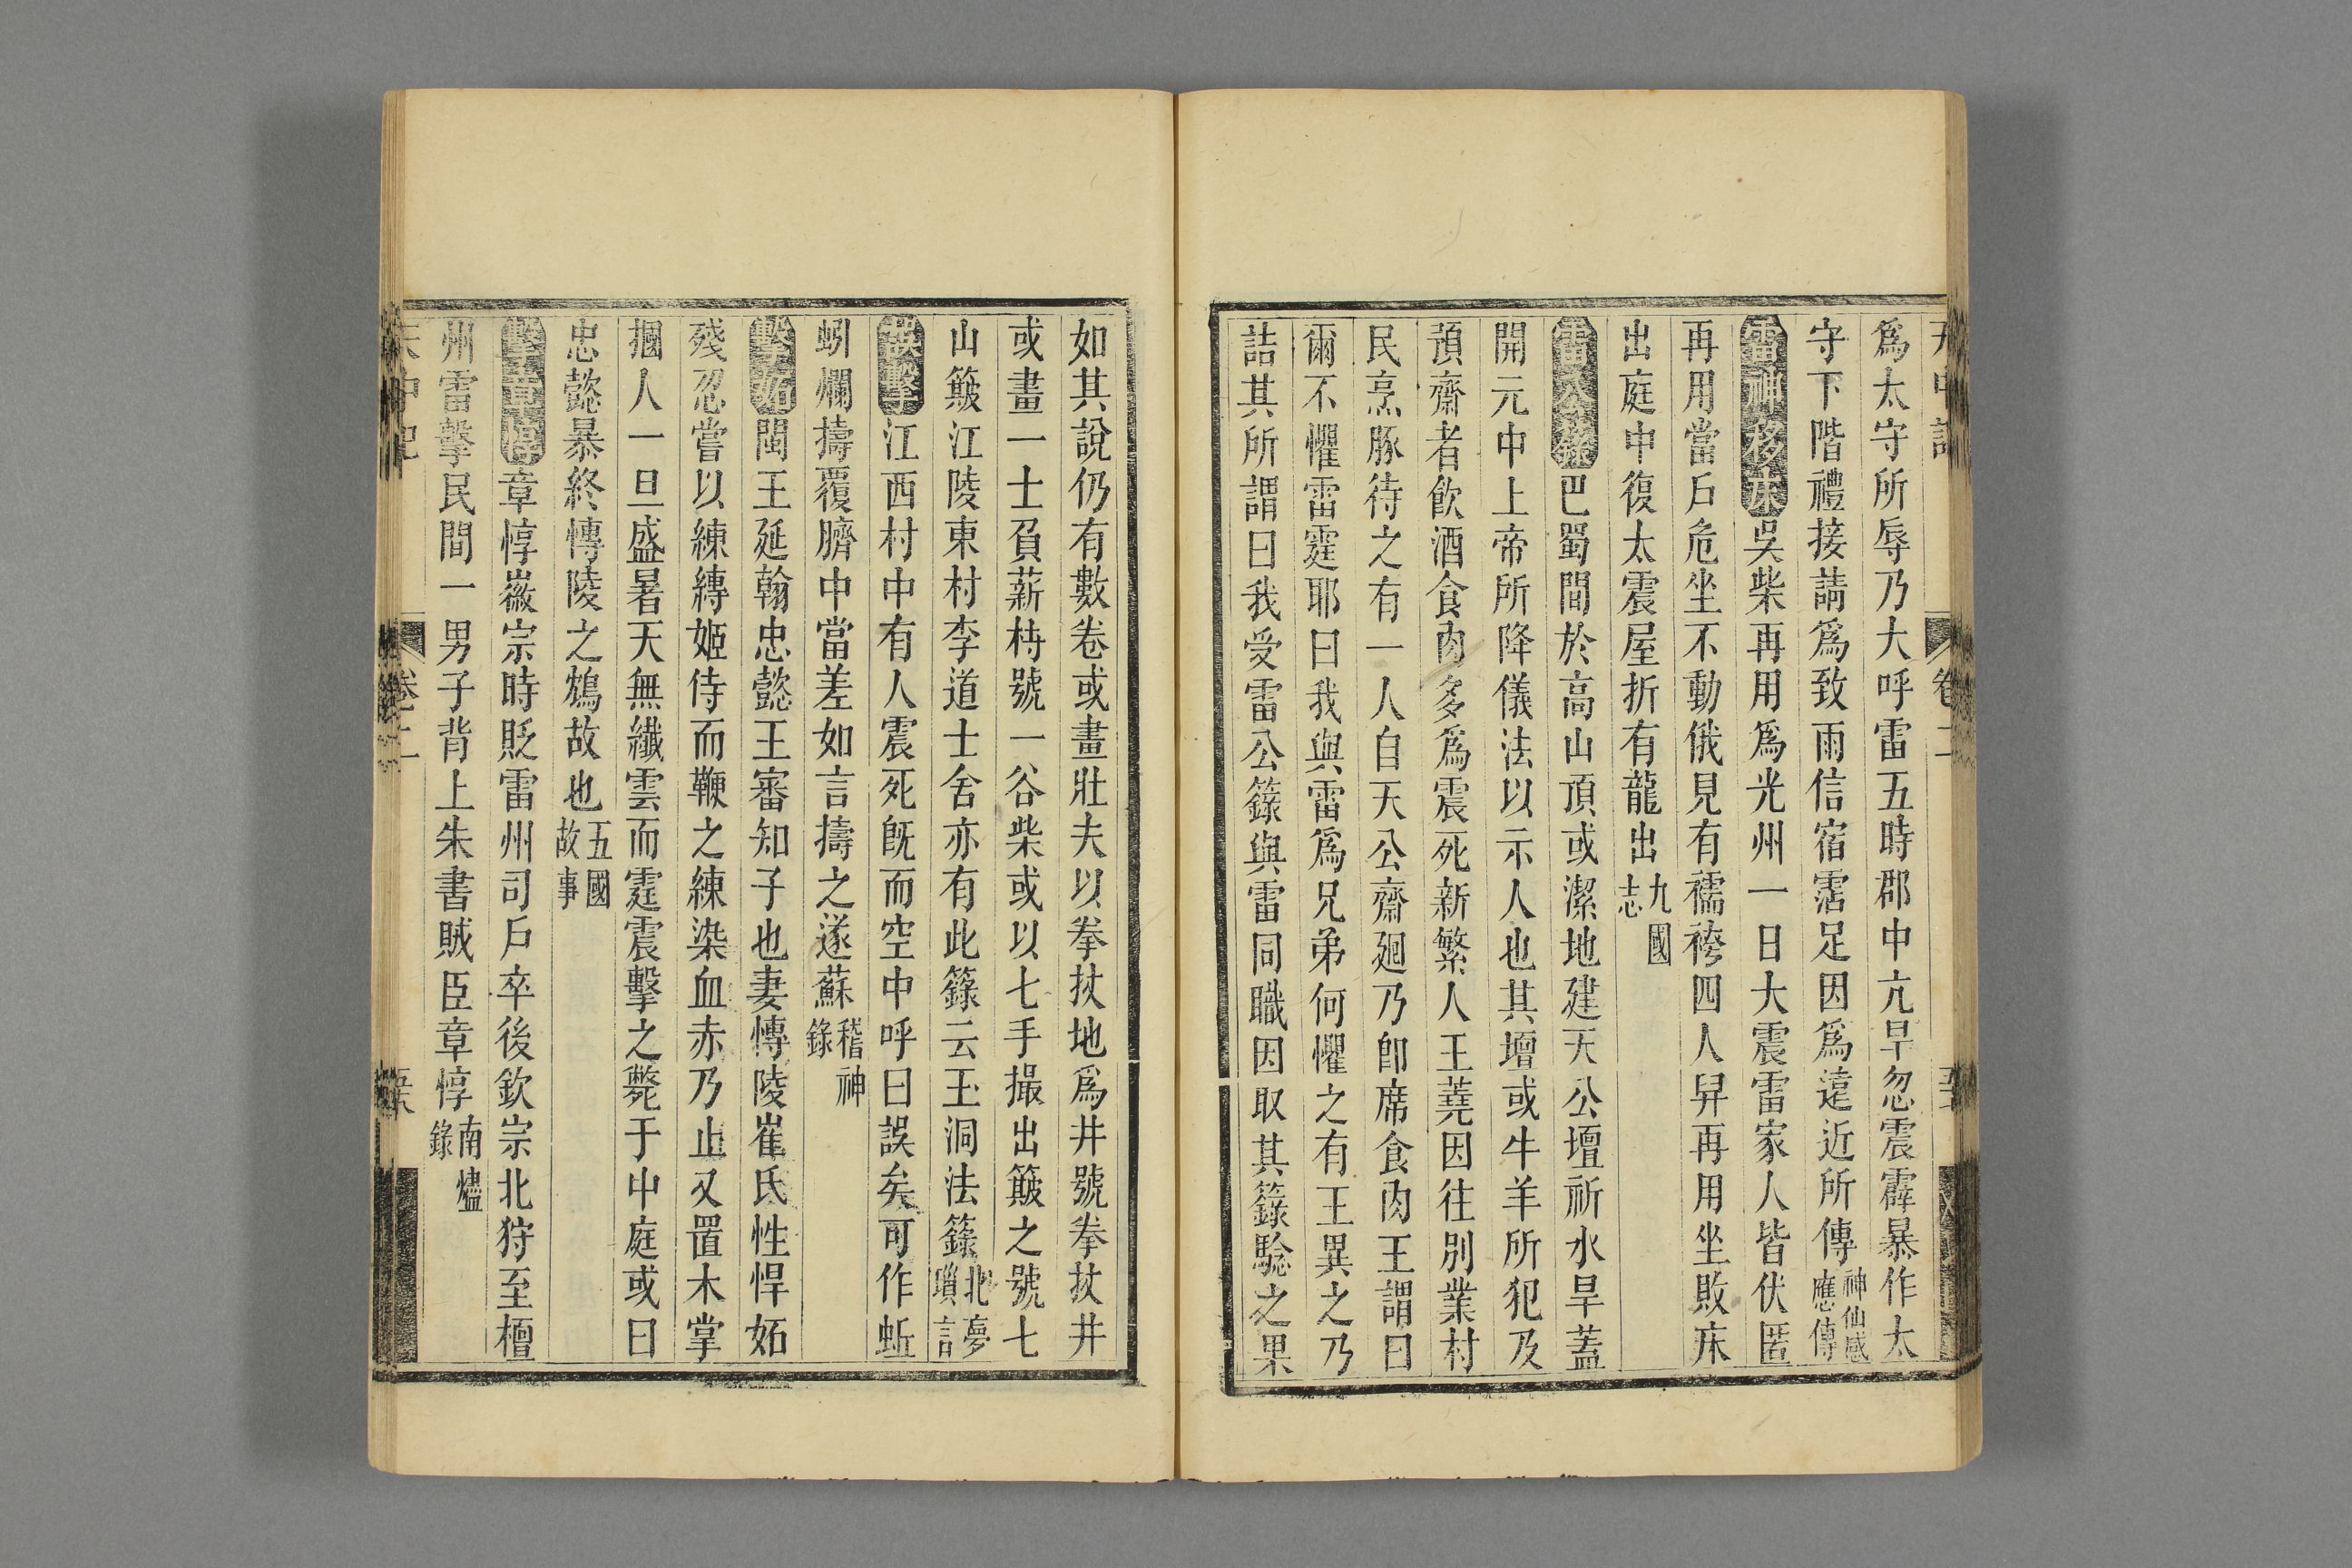 爲太守所辱乃大呼雷五時郡中亢旱忽震霹暴作太
守下階禮接請爲致雨信宿霑足因爲遠近所傳神仙感應傳
雷神移床吳柴再用爲光州一日大震雷家人皆伏匿
再用當戶危坐不動俄見有襦袴四人舁再用坐敗床
出庭中復太震屋折有龍出九國志
雷公籙巴蜀間於高山頂或潔地建天公壇祈水旱蓋
開元中上帝所降儀法以示人也其壇或牛羊所犯及
預齋者飮酒食肉多爲震死新繁人王蕘因往別業村
民烹豚待之有一人自天公齋廻乃卽席食肉王謂曰
爾不懼雷霆耶曰我與雷爲兄弟何懼之有王異之乃
詰其所謂曰我受雷公籙與雷同職因取其籙驗之果
如其說仍有數卷或畫壯夫以拳扠地爲井號拳扠井
或畫一士負薪栲號一谷柴或以七手撮出簸之號七
山簸江陵東村李道士舍亦有此籙云玉洞法籙北夢瑣言
誤擊江西村中有人震死旣而空中呼曰誤矣可作蚯
蚓爛擣覆臍中當差如言擣之遂蘇稽神錄
擊妬閩王延翰忠懿王審知子也妻博陵崔氏性悍妬
殘忍嘗以練縛姬侍而鞭之練染血赤乃止又置木掌
摑人一旦盛暑天無纖雲而霆震擊之斃于中庭或曰
忠懿暴終博陵之鴆故也五國故事
擊章惇章惇徽宗時貶雷州司戶卒後欽宗北狩至檀
州雷擊民間一男子背上朱書賊臣章惇南燼錄
卷二